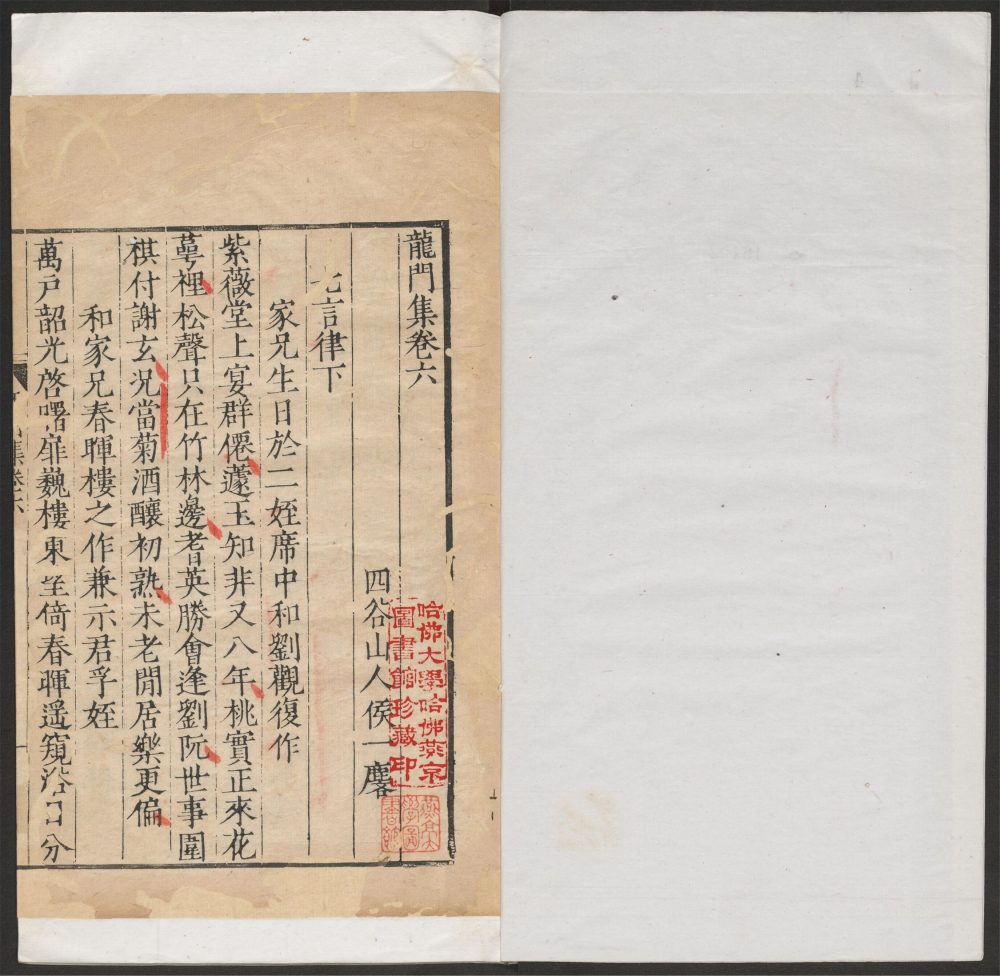 龍門集卷六
四谷山人侯一麐
七言律下
家兄生日於二姪席中和劉觀復作
紫薇堂上宴群僊蘧玉知非又八年桃實正來花
萼裡松聲只在竹林邊耆英勝會逢劉阮世事圍
棋付謝玄况當菊酒釀初熟未老閒居樂更偏
和家兄春暉樓之作兼示君孚姪
萬戸韶光啓曙扉巍樓東 倚春暉遥窺 日分
集卷六
哈佛大學哈佛燕京
圖書館珍藏印